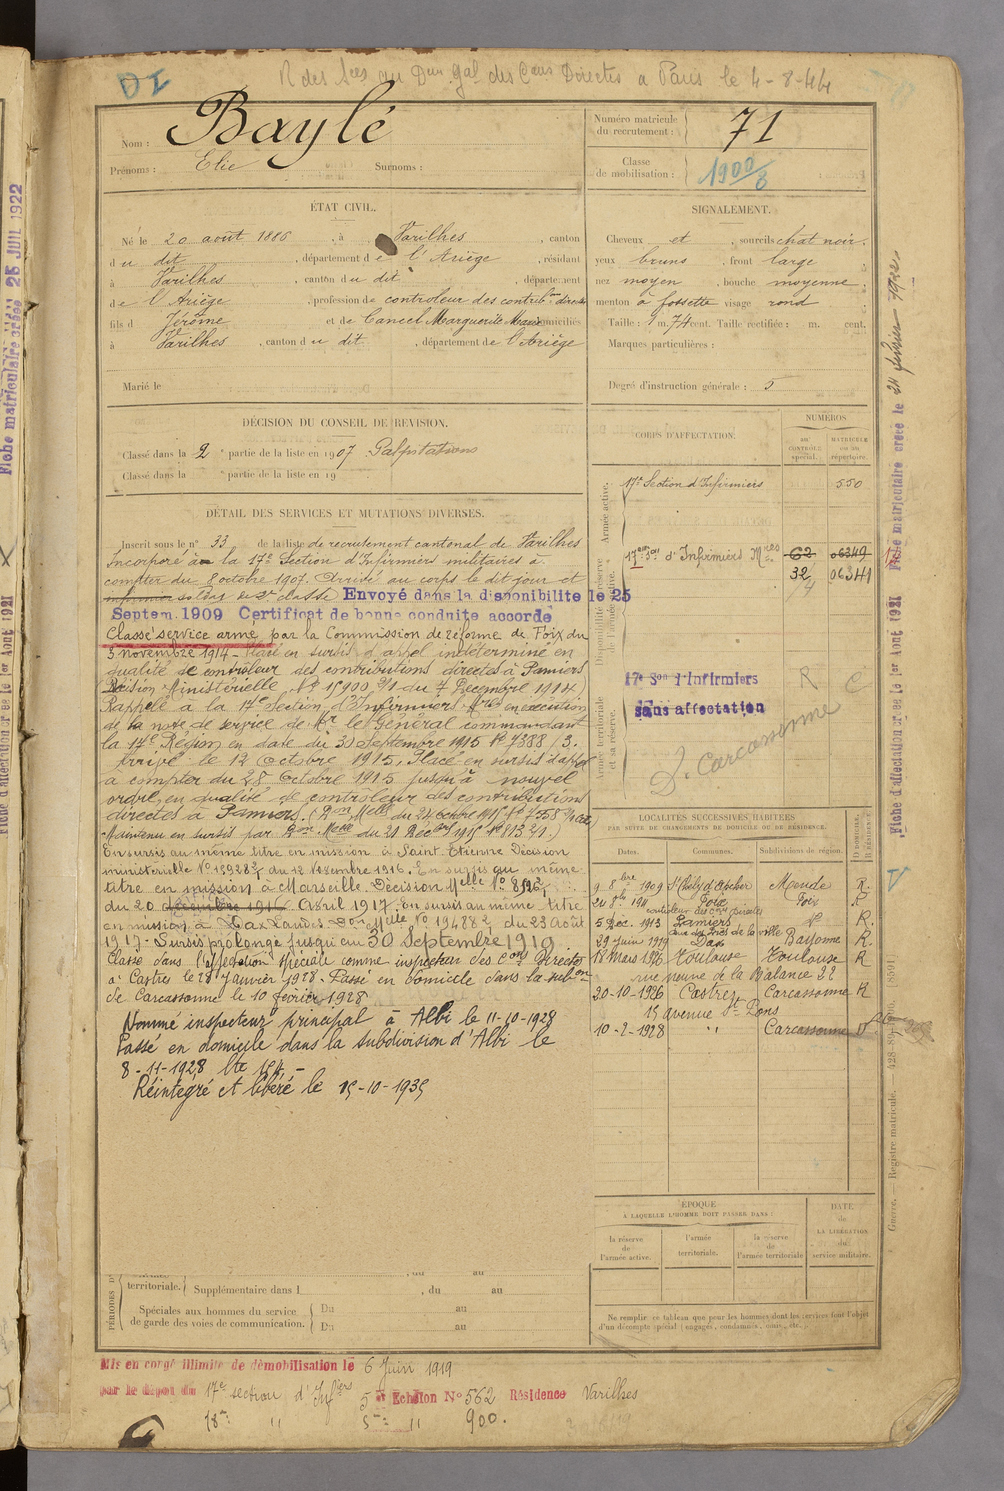 DI
R des Sces au Don Gal des Cons Directes a Paris le 4-8-44
Nom : Baylé
Prénoms : Elie Surnoms :
Numéro matricule du recrutement : 71
Classe de mobilisation : 1900/8
ÉTAT CIVIL.
Né le 20 août 1886, à Varilhes, canton
du dit, département de l'Ariège, résidant
à Varilhes, canton du dit, département
de l'Ariège, profession de controleur des contribons directes
fils d Jérôme et de Cancel Marguerite Marie domiciliés
à Varilhes, canton du dit, département de l'Ariège
Marié le
SIGNALEMENT.
Cheveux et, sourcils chat noir.
yeux bruns, front large
nez moyen, bouche moyenne
menton à fossette visage rond
Taille : 1 m. 74 cent. Taille rectifiée : m. cent.
Marques particulières :
Degré d'instruction générale : 5
DÉCISION DU CONSEIL DE REVISION.
Classé dans la 2e partie de la liste en 1907 Palpitations
Classé dans la e partie de la liste en 19
DÉTAIL DES SERVICES ET MUTATIONS DIVERSES.
Inscrit sous le n° 33 de la liste de recrutement cantonal de Varilhes
Incorporé à la 17e Section d'Infirmiers militaires à
compter du 8 octobre 1907. Arrivé au corps le dit jour et
soldat de 2e classe Envoyé dans la disponibilite le 25
Septem. 1909 Certificat de bonne conduite accordé
Classé service armé par la Commission de réforme de Foix du
3 novembre 1914 - Placé en sursis d'appel indéterminé en
qualité de contrôleur des contributions directes à Pamiers
Décision Ministérielle No 15900 3/1 du 7 Decembre 1914)
Rappelé à la 17e Section d'Infirmiers Mres en execution
de la note de service de Mr le Général commandant
la 17e Région en date du 30 Septembre 1915 No 7388/3.
Arrivé le 12 octobre 1915. Placé en sursis d'appel
à compter du 28 Octobre 1915 jusqu'à nouvel
ordre, en qualité de contrôleur des contributions
directes à Pamiers. (Don Melle du 24 octobre 1915
Maintenu en sursis par Don Melle du 21 Decbre 1915 No 813 3/1.)
En sursis au même titre en mission à Saint-Etienne Décision
ministerielle No 15928 3/1 du 12 Novembre 1916. En sursis au même
titre en mission à Marseille. Décision Melle No
du 20 décembre 1916 Avril 1917, en sursis au même titre
en mission à Dax Landes Don Melle No 19428 du 23 Août
1917 - Sursis prolongé jusqu'au 30 Septembre 1919
Classé dans l'affectation spéciale comme inspecteur des Cons Directes
à Castres le 28 Janvier 1928. Passé en domicile dans la subon
de Carcassonne le 10 février 1928
Nommé inspecteur principal à Albi le 11-10-1928
Passé en domicile dans la subdivision d'Albi le
8-11-1928
Réintégré et libéré le 15-10-1935
CORPS D'AFFECTATION.
NUMÉROS
AU CONTRÔLE spécial.
MATRICULE ou au répertoire.
Armée active.
17e Section d'Infirmiers 550
Disponibilité et réserve de l'armée active.
17eme Son d'Infirmiers Mres 62 06349
32 06341
Armée territoriale et sa réserve.
17e Son d'Infirmiers
sans affectation
R C
S. Carcassonne
LOCALITÉS SUCCESSIVES HABITÉES
PAR SUITE DE CHANGEMENTS DE DOMICILE OU DE RÉSIDENCE.
Dates. Communes. Subdivisions de région. D DOMICILE. R RÉSIDENCE
9 8bre 1909 St Chély d'Apcher Mende R.
Foix Foix R
controleur des Cons directes
5 Dec. 1913 Pamiers do R.
29 juin 1919 Dax Bayonne R.
18 Mars 1926 Toulouse Toulouse R
rue neuve de la Balance 22
20-10-1926 Castres Carcassonne R
15 avenue St Pons
10-2-1928 '' Carcassonne
ÉPOQUE
À LAQUELLE L'HOMME DOIT PASSER DANS :
la réserve de l'armée active.
l'armée territoriale.
la réserve de l'armée territoriale
DATE de LA LIBÉRATION du service militaire.
Ne remplir ce tableau que pour les hommes dont les services font l'objet
d'un décompte spécial (engagés, condamnés, omis, etc.).
PÉRIODES D'
territoriale. Supplémentaire dans l , du au
Spéciales aux hommes du service de garde des voies de communication. Du au
Du au
Mis en congé illimité de démobilisation le 6 Juin 1919
par le dépôt du 17e section d'Infiers 5e Echelon No 562 Résidence Varilhes
18e '' 5me '' 900.
Fiche matriculaire créée le 24 février 1922
Fiche d'affectation créée le 1er Aout 1921
Guerre. — Registre matricule. — 428-89-1906. [8591]
Fiche matriculaire créée le 25 JUIL 1922
Fiche d'affectation créée le 1er Aout 1921